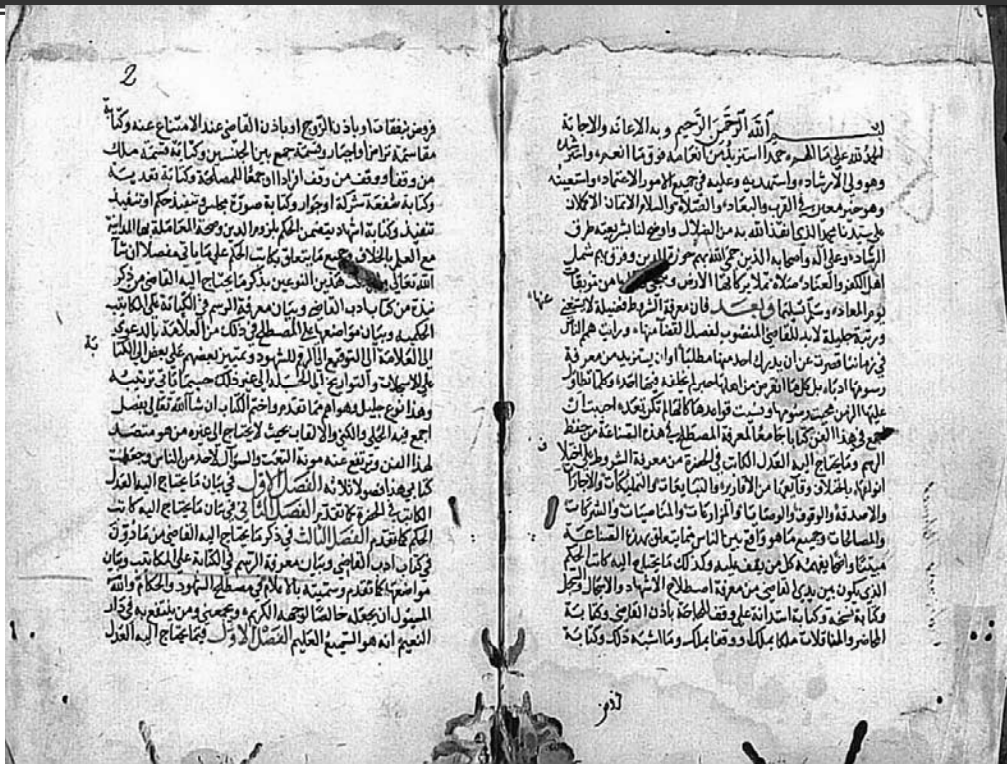 بسم الله الرحمن الرحيم وبه الاعانة والاجابة
الحمد لله على ما الهم حمدا استزيد من انعامه فوق ما انعم واسترشد
وهو ولى الارشاد واستهديه وعليه فى جميع الامور الاعتماد واستعينه
وهو خير معين فى القرب والبعاد والصلاة والسلام الاتمان الاكملان
على سيدنا محمد الذى انقذ الله به من الضلال واوضح لنا شريعته طرق
الرشاد وعلى اله واصحابه الذين حمى الله بهم حوزة الدين وفرق بهم شمل
اهل الكفر والعناد صلاة تملا بركاتها الارض من
يوم المعاد وسلم تسليما وبعد فان معرفة الشروط فضيلة لا يستغنى
عنها
ورتبة جليلة لابد للقاضى المنصوب لفصل القضا منها ورايت همم الناس
فى زماننا قصرت عن ان يدرك احد منها مطلبا او ان يستزيد من معرفة
رسومها ادبا بل كلما انقرض من اهلها حبر لم يخلفه فيها احد وكلما تطاول
عليها الزمن محيت رسومها ونسيت قواعدها كانها لم تكن تعهد احببت ان
اجمع فى هذا الفن كتابا جامعا لمعرفة المصطلح فى هذه الصناعة من حفظ
ن
المهم وما يحتاج اليه العدل الكاتب فى الحجزة من معرفة الشروط على اختلاف
انواعها باختلاف وقائعها من الاقارير والتبايعات والتمليكات والاجارات
والاصدقة والوقوف والوصايا والمزارعات والمناصبات والشركات
والمصالحات وجميع ما هو واقع بين الناس مما يتعلق بهذه الصناعة
مبينا واضحا يفهمه كل من يقف عليه وكذلك ما يحتاج اليه كاتب الحكم
الذى يكون بين يدى القاضى من معرفة اصطلاح الاشهاد والاسجال والسجل
وكتابة نسخه وكتابة استدانة على وقف لحاجة باذن القاضى وكتابة
المحاضر والمناقلات ملكا بملك ووقفا بملك وما اشبه ذلك وكتابة
فروض
2
فروض نفقات او باذن الزوج او باذن القاضى عند الامتناع عنه وكتابة
مقاسمة تراض واجبار وقسمة جمع بين الجنسين وكتابة قسمة ملك
من وقف او وقف من وقف افرادا او جمعا للمصلحة وكتابة تقدمة
وكتابة شفعة شركة او جوار وكتابة صورة مجلس وتنفيذ حكم او تنفيذ
تنفيذ وكتابة اشهاد يتضمن الحكم بلزوم الدين وصحة المعاملة بها الدائنة
مع العلم بالخلاف وجميع ما يتعلق بكاتب الحكم على ما ياتى مفصلا ان شا
الله تعالى هذين النوعين بذكر ما يحتاج اليه القاضى من ذكر
نبذة من كتاب ادب القاضى وبيان معرفة الرسم فى الكتابة على المكاتيب
الحكمية وبيان مواضعها على المصطلح فى ذلك من العلامة بالدعوى
الى العلامة الى التوقيع الى الرقم للشهود وتمييز بعضهم على بعض الى الكتابة
بة
على الاسجالات والتواريخ الى الحسبلة الى غير ذلك حسبما ياتى ترتيبه
وهذا نوع جليل وهو اهم مما تقدم واختم الكتاب ان شا الله تعالى بفصل
اجمع فيه الحلى والكنى والالقاب بحيث لا يحتاج الى غيره من هو متصد
لهذا الفن ويرتفع عنه مونة التعب والسوال لاحد من الناس وجعلت
كتابى هذا فصولا ثلاثة الفصل الاول فى بيان ما يحتاج اليه العدل
الكاتب فى الحجزة كما تقدم الفصل الثانى فى بيان ما يحتاج اليه كاتب
الحكم كما تقدم الفصل الثالث فى ذكر ما يحتاج اليه القاضى من مادون
فى كتاب ادب القاضى وبيان معرفة الرسم فى الكتابة على المكاتيب وبيان
مواضعها كما تقدم وسميته بالاعلام فى مصطلح الشهود والحكام والله
المسئول ان يجعله خالصا لوجهه الكريم ويجمعنى ومن ينتفع به فى دار
النعيم انه هو السميع العليم الفصل الاول فيما يحتاج اليه العدل